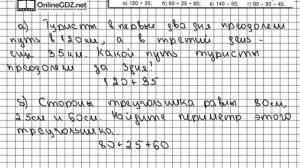 OnlineGDZ.net
а) 120 + 35;
б) 80 + 25 + 60;
в) 140 – 50;
г) 90 – 20 – 45.
а) Туристы в первые два дня преодолели
путь в 120 км, а в третий день -
еще 35 км. Какой путь туристы
преодолели за 3 дня?
120 + 35
б) Стороны треугольника равны 80 см,
25 см и 60 см. Найдите периметр этого
треугольника.
80+25+60